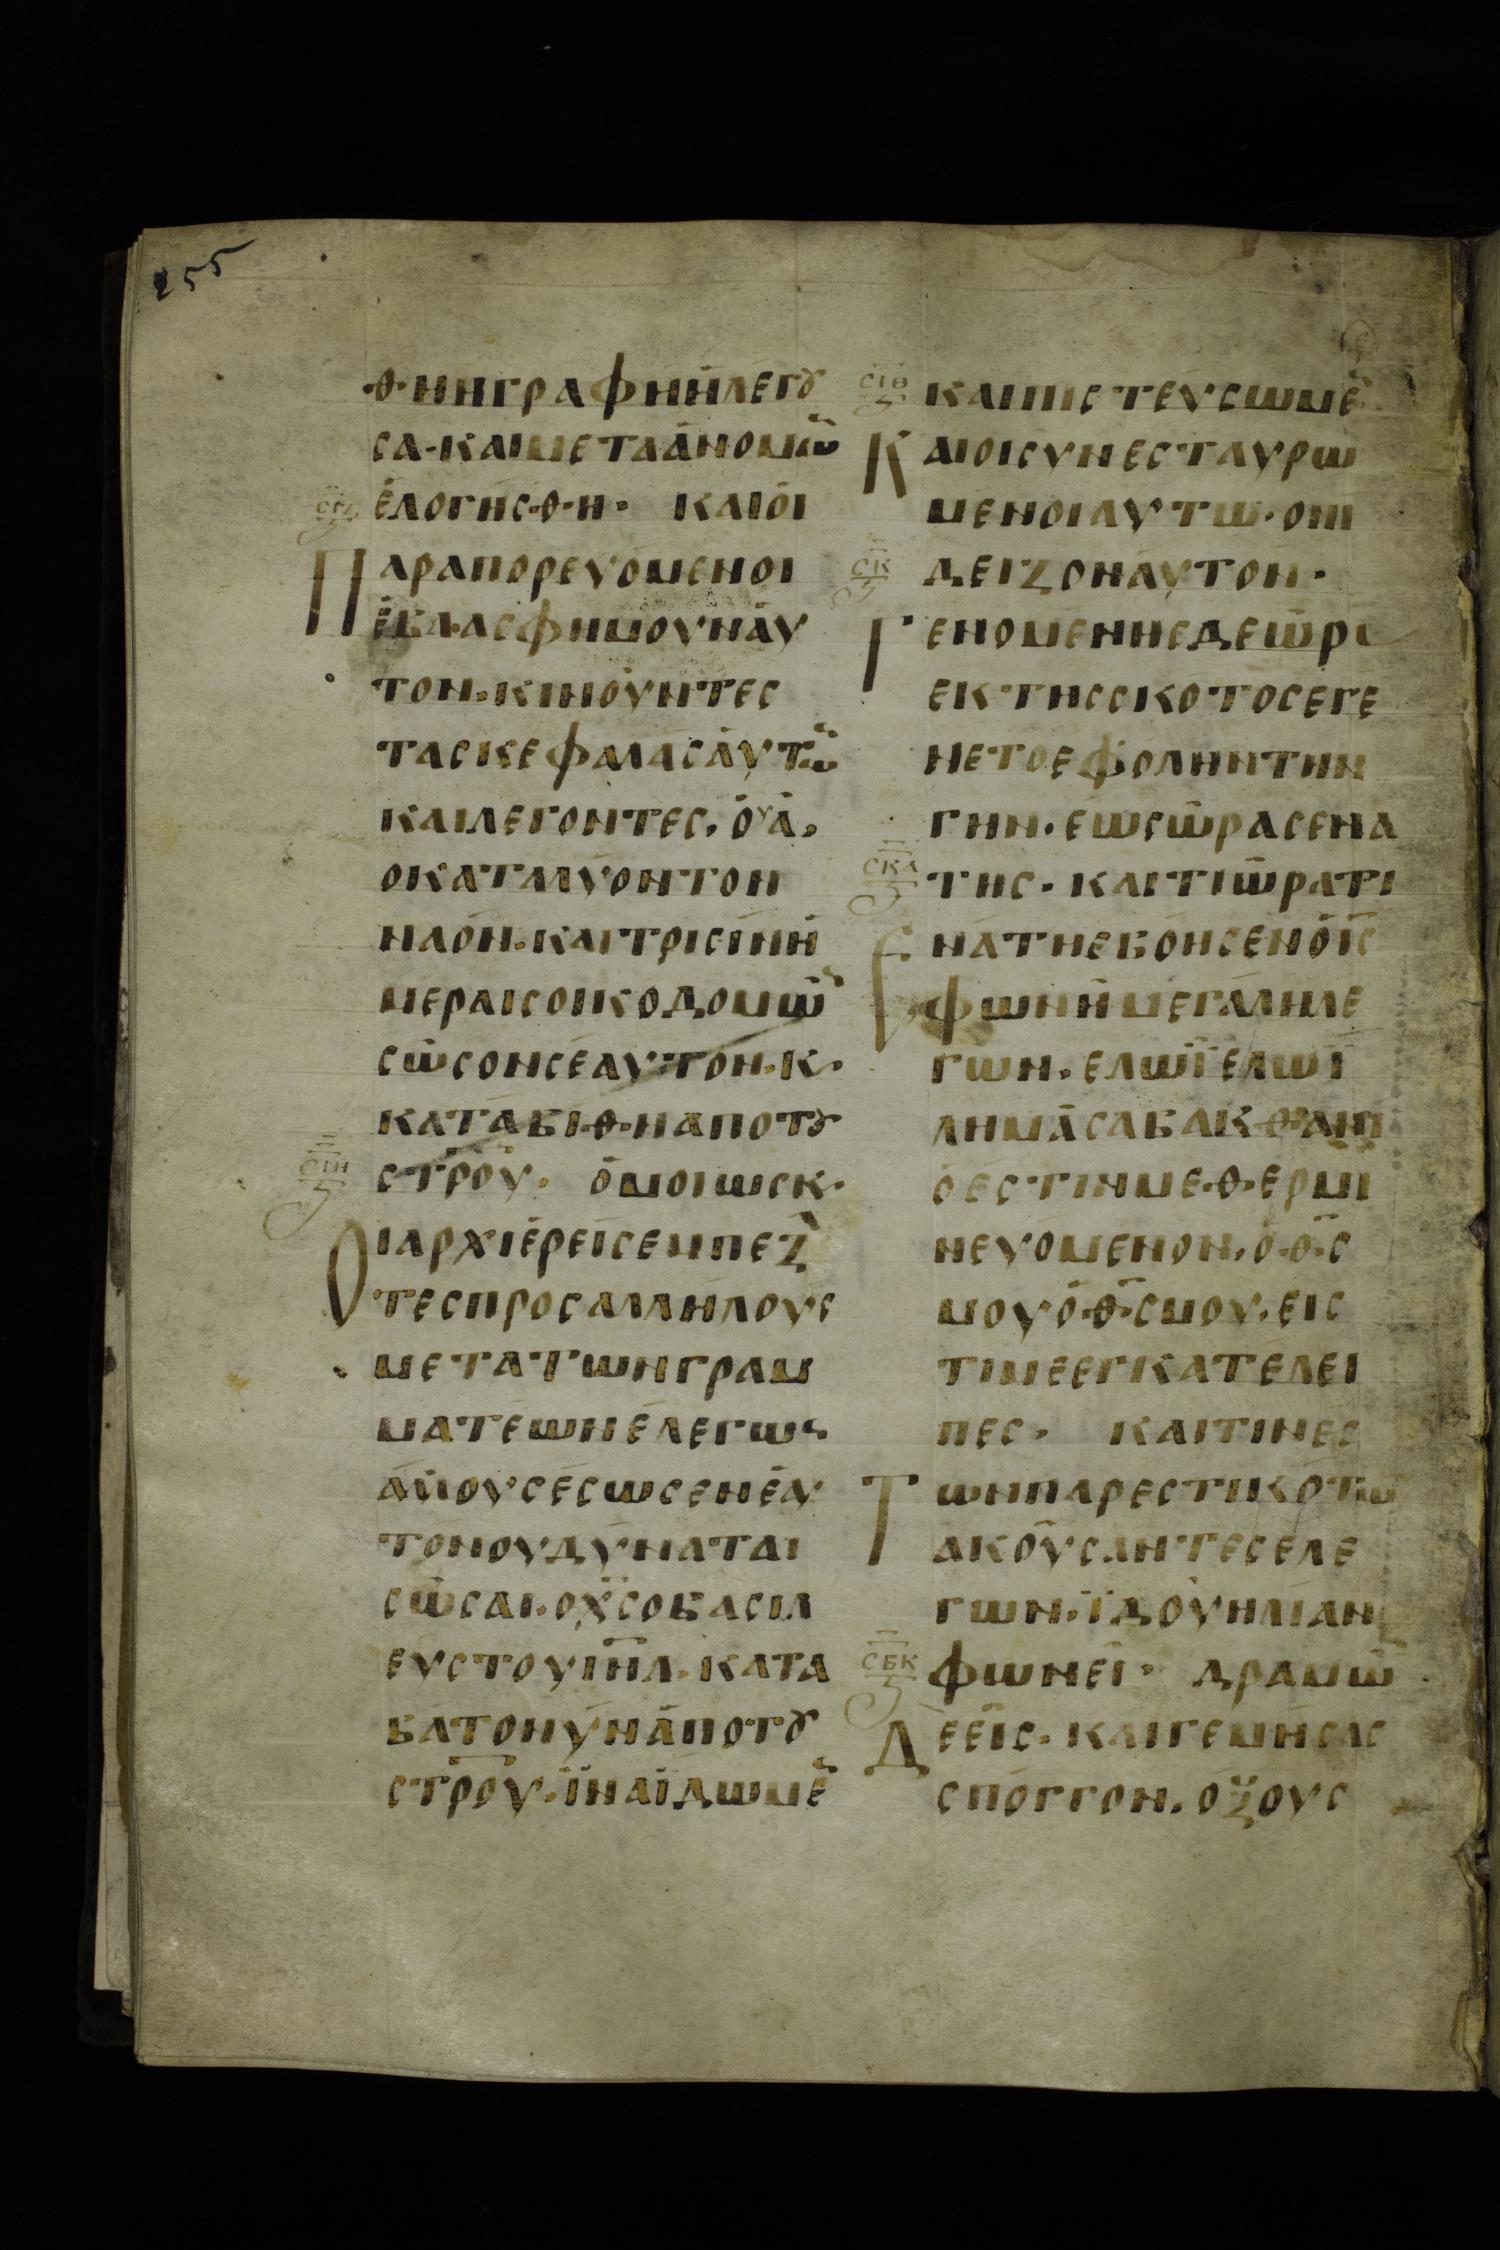 255
·Θ· Η Η ΓΡΑΦΗ Η ΛΕΓȢ
ΣΑ· ΚΑΙ ΜΕΤΑ ΑΝΟΜΩ̅
ΕΛΟΓΗΣ·Θ·Η· ΚΑΙ ΟΙ
ΠΑΡΑΠΟΡΕΥΟΜΕΝΟΙ
ΕΒΛΑΣΦΗΜΟΥΝ ΑΥ
ΤΟΝ· ΚΙΝΟΥΝΤΕΣ
ΤΑΣ ΚΕΦΑΛΑΣ ΑΥΤΩ̅
ΚΑΙ ΛΕΓΟΝΤΕΣ· ΟΥΑ·
Ο ΚΑΤΑΛΥΟΝ ΤΟΝ
ΝΑΟΝ· ΚΑΙ ΤΡΙΣΙΝ Η
ΜΕΡΑΙΣ ΟΙΚΟΔΟΜΩ̅
ΣΩΣΟΝ ΣΕΑΥΤΟΝ· Κ·
ΚΑΤΑΒΙ·Θ·Ν ΑΠΟ ΤȢ
ΣΤΡ̅ΟΥ· ΟΜΟΙΩΣ Κ·
ΟΙ ΑΡΧΙΕΡΕΙΣ ΕΜΠΕΖ
ΤΕΣ ΠΡΟΣ ΑΛΛΗΛΟΥΣ
ΜΕΤΑ ΤΩΝ ΓΡΑΜ
ΜΑΤΕΩΝ ΕΛΕΓΩΝ
ΑΛΛΟΥΣ ΕΣΩΣΕΝ ΕΑΥ
ΤΟΝ ΟΥ ΔΥΝΑΤΑΙ
ΣΩΣΑΙ· Ο Χ̅Σ Ο ΒΑΣΙΛ
ΕΥΣ ΤΟΥ ΙΗ̅Λ· ΚΑΤΑ
ΒΑΤΟ ΝΥΝ ΑΠΟ ΤȢ
ΣΤΡ̅ΟΥ· ΪΝΑ ΪΔΩΜΕ̅
ΣΙΘ ΚΑΙ ΠΙΣΤΕΥΣΩΜΕ̅
ΚΑΙ ΟΙ ΣΥΝΕΣΤΑΥΡΩ
ΜΕΝΟΙ ΑΥΤΩ· ΟΠΙ
ΣΚ ΔΕΙΖΟΝ ΑΥΤΟΝ·
ΓΕΝΟΜΕΝΗΣ ΔΕ ΩΡΙ
ΕΚΤΗΣ ΣΚΟΤΟΣ ΕΓΕ
ΝΕΤΟ ΕΦ ΟΛΗΝ ΤΗΝ
ΓΗΝ· ΕΩΣ ΩΡΑΣ ΕΝΑ
ΣΚΑ ΤΗΣ· ΚΑΙ ΤΙ ΩΡΑ ΤΙ
ΕΝΑΤΗ ΕΒΟΗΣΕΝ Ο Ι̅Σ
ΦΩΝΗ ΜΕΓΑΛΗ ΛΕ
ΓΩΝ· ΕΛΩΪ ΕΛΩΪ
ΛΗΜΑ ΣΑΒΑΚΘΑΝΙ
Ο ΕΣΤΙΝ ΜΕ·Θ·ΕΡΜΙ
ΝΕΥΟΜΕΝΟΝ· Ο ·Θ̅·Σ
ΜΟΥ Ο·Θ̅·Σ ΜΟΥ· ΕΙΣ
ΤΙ ΜΕ ΕΓΚΑΤΕΛΕΙ
ΠΕΣ· ΚΑΙ ΤΙΝΕΣ
ΤΩΝ ΠΑΡΕΣΤΙΚΟΤΩ̅
ΑΚΟΥΣΑΝΤΕΣ ΕΛΕ
ΓΩΝ· ΪΔΟΥ ΗΛΙΑΝ
ΣΒΚ ΦΩΝΕΙ· ΔΡΑΜΩ̅
ΔΕ ΕΙΣ· ΚΑΙ ΓΕΜΗΣΑΣ
ΣΠΟΓΓΟΝ· ΟΞΟΥΣ